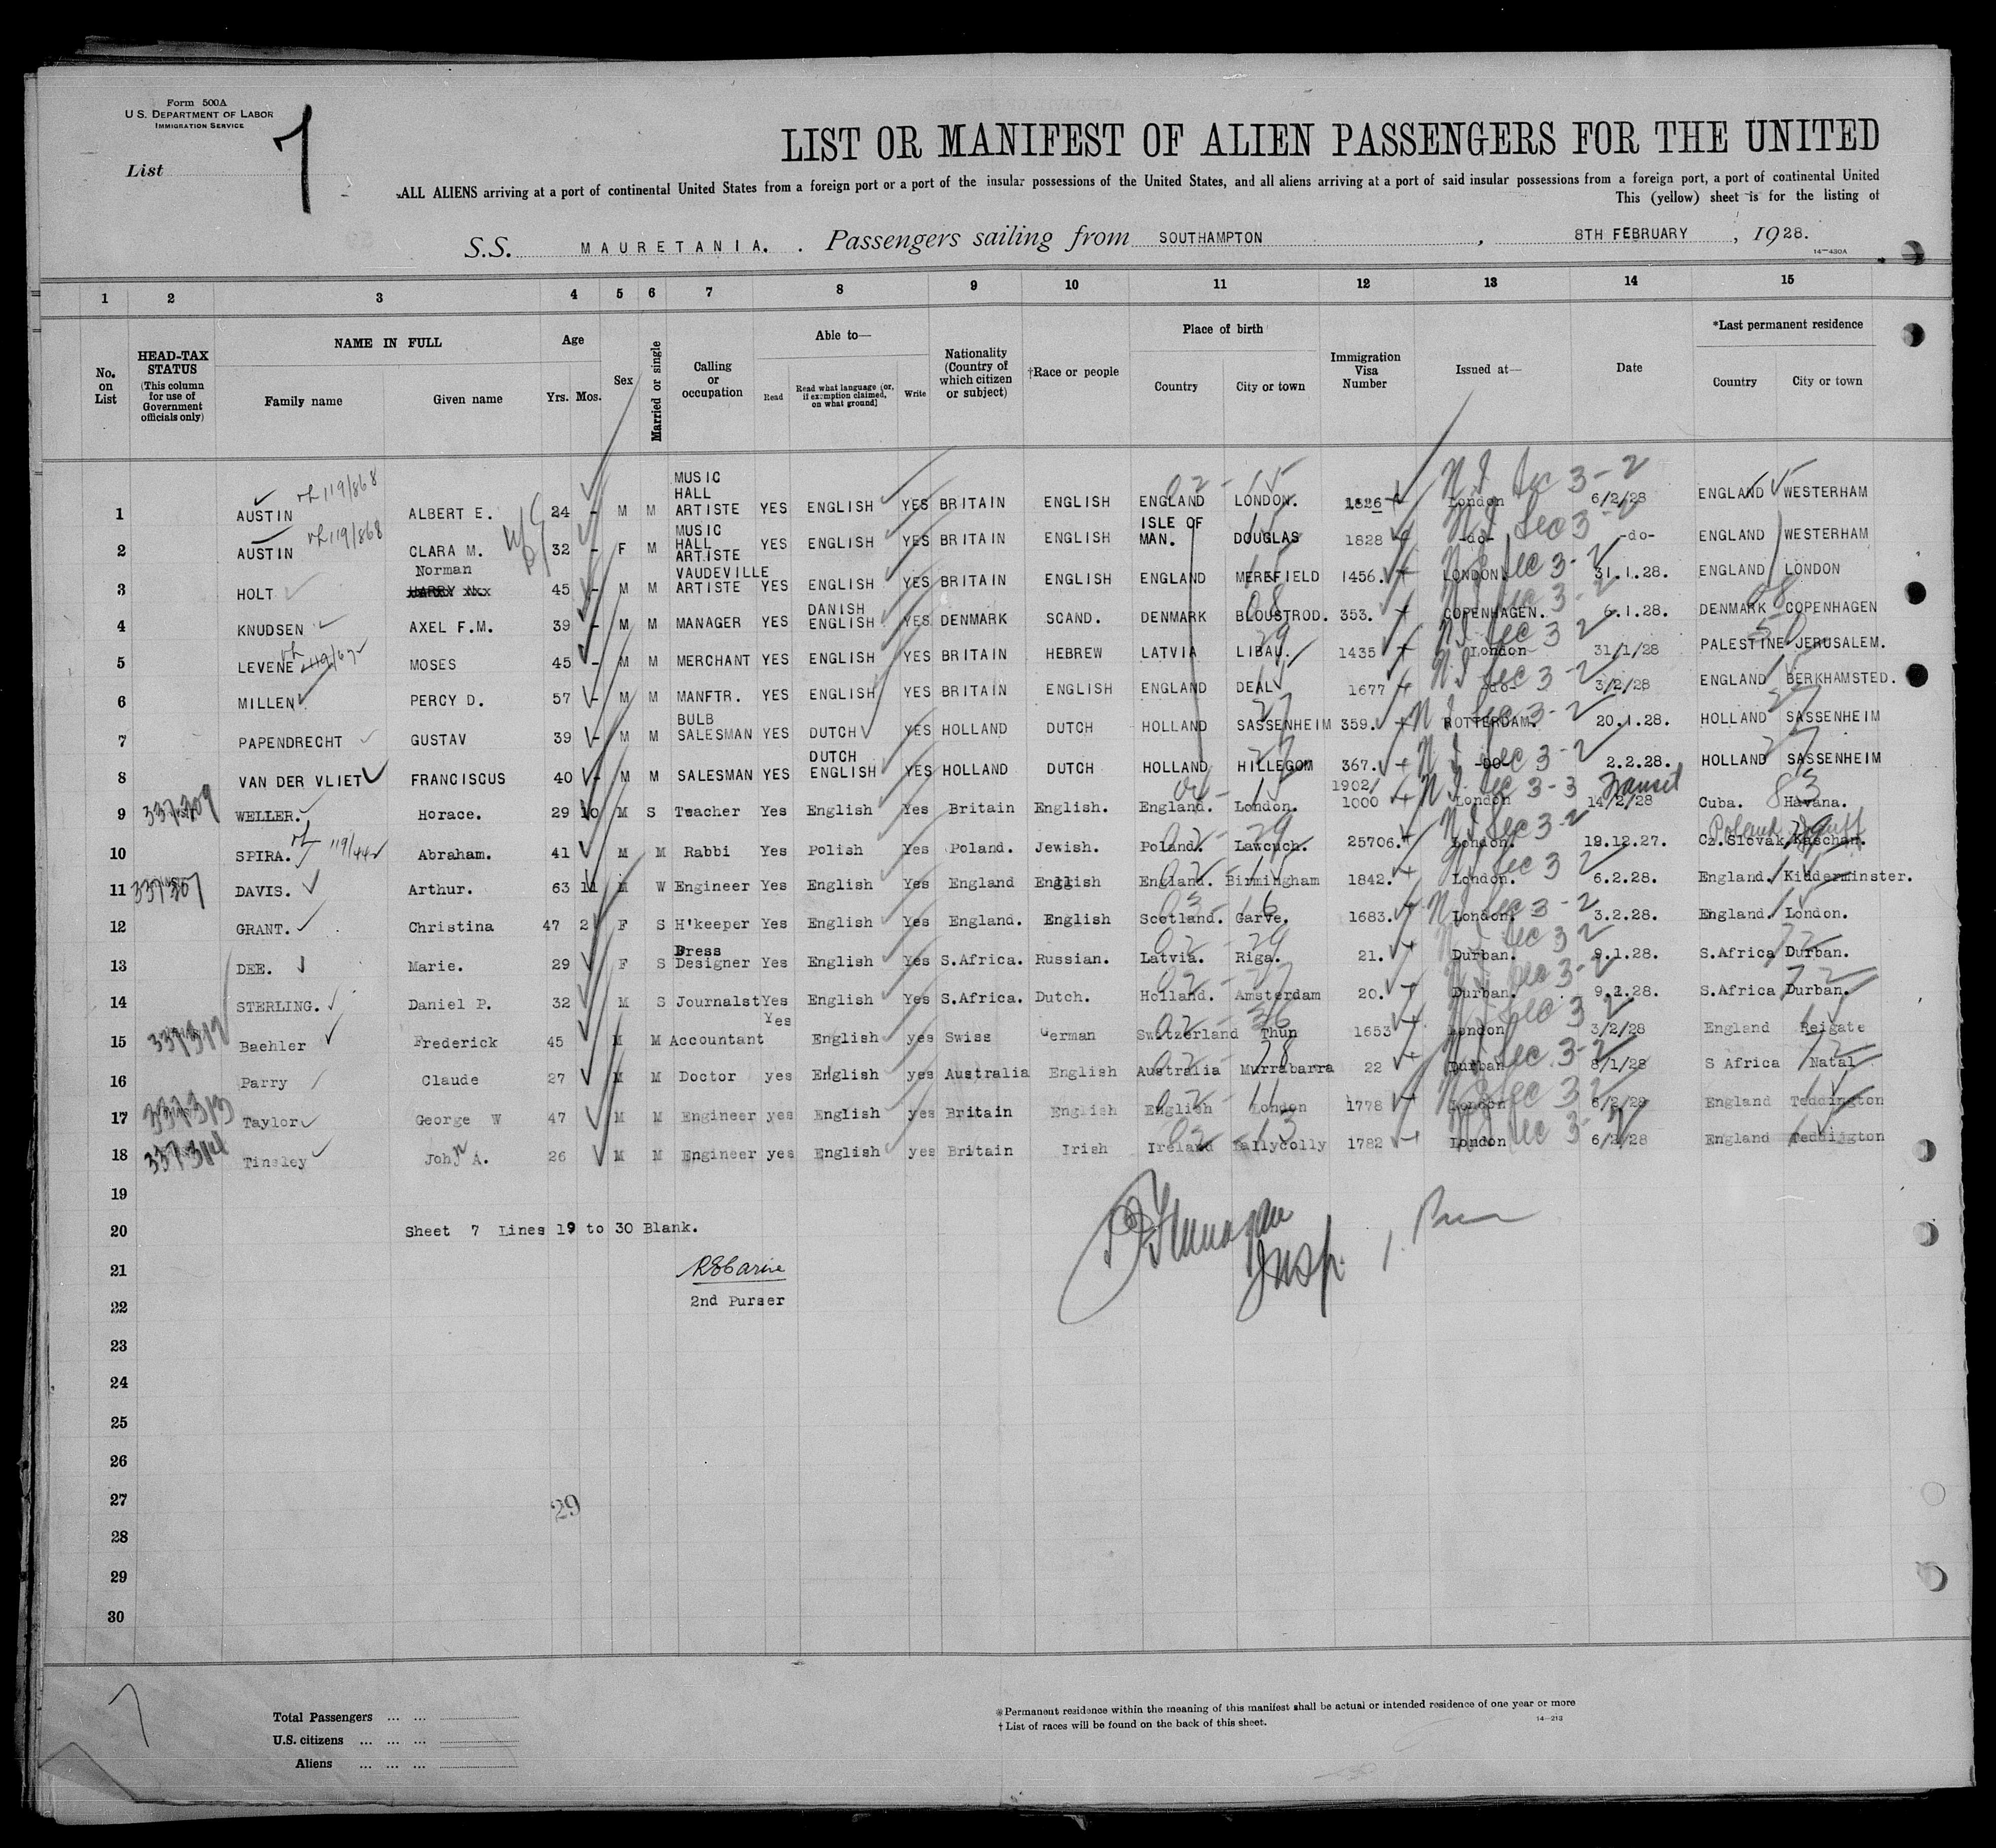 Form 500A
U S. DEPARTMENT OF LABOR
IMMIGRATION SERVICE
List 7
LIST OR MANIFEST OF ALIEN PASSENGERS FOR THE UNITED
ALL ALIENS arriving at a port of continental United States from a foreign port or a port of the insular possessions of the United States, and all aliens arriving at a port of said insular possessions from a foreign port, a port of continental United
This (yellow) sheet is for the listing of
S.S. MAURETANIA. Passengers sailing from SOUTHAMPTON, 8TH FEBRUARY, 1928.
14—430A
1 2 3 4 5 6 7 8 9 10 11 12 13 14 15
No. on List
HEAD-TAX STATUS (This column for use of Government officials only)
NAME IN FULL Family name Given name
Age Yrs. Mos.
Sex
Married or single
Calling or occupation
Able to— Read Read what language (or, if exemption claimed, on what ground) Write
Nationality (Country of which citizen or subject)
†Race or people
Place of birth Country City or town
Immigration Visa Number
Issued at—
Date
*Last permanent residence Country City or town
1 AUSTIN 119/868 ALBERT E. 24 - M M MUSIC HALL ARTISTE YES ENGLISH YES BRITAIN ENGLISH ENGLAND LONDON. 1826 London 6/2/28 ENGLAND WESTERHAM
2 AUSTIN 119/868 CLARA M. 32 - F M MUSIC HALL ARTISTE YES ENGLISH YES BRITAIN ENGLISH ISLE OF MAN. DOUGLAS 1828 -do- -do- ENGLAND WESTERHAM
3 HOLT Norman HARRY 45 - M M VAUDEVILLE ARTISTE YES ENGLISH YES BRITAIN ENGLISH ENGLAND MEREFIELD 1456. LONDON. 31.1.28. ENGLAND LONDON
4 KNUDSEN AXEL F.M. 39 - M M MANAGER YES DANISH ENGLISH YES DENMARK SCAND. DENMARK BLOUSTROD. 353. COPENHAGEN. 6.1.28. DENMARK COPENHAGEN
5 LEVENE MOSES 45 - M M MERCHANT YES ENGLISH YES BRITAIN HEBREW LATVIA LIBAU. 1435 London 31/1/28 PALESTINE JERUSALEM.
6 MILLEN PERCY D. 57 - M M MANFTR. YES ENGLISH YES BRITAIN ENGLISH ENGLAND DEAL 1677 -do- 3/2/28 ENGLAND BERKHAMSTED.
7 PAPENDRECHT GUSTAV 39 - M M BULB SALESMAN YES DUTCH YES HOLLAND DUTCH HOLLAND SASSENHEIM 359. ROTTERDAM. 20.1.28. HOLLAND SASSENHEIM
8 VAN DER VLIET FRANCISCUS 40 - M M SALESMAN YES DUTCH ENGLISH YES HOLLAND DUTCH HOLLAND HILLEGOM 367. -DO- 2.2.28. HOLLAND SASSENHEIM
9 WELLER. Horace. 29 10 M S Teacher Yes English Yes Britain English. England. London. 1902/1000 London Transit 14/2/28 Cuba. Havana.
10 SPIRA. 119/442 Abraham. 41 M M Rabbi Yes Polish Yes Poland. Jewish. Poland. Lawcuch. 25706. London. 19.12.27. Poland Cz.Slovak Kaschan.
11 DAVIS. Arthur. 63 11 M W Engineer Yes English Yes England English England. Birmingham 1842. London. 6.2.28. England. Kidderminster.
12 GRANT. Christina 47 2 F S H'keeper Yes English Yes England. English Scotland. Garve. 1683. London. 3.2.28. England. London.
13 DEE. Marie. 29 F S Dress Designer Yes English Yes S.Africa. Russian. Latvia. Riga. 21. Durban. 9.1.28. S.Africa Durban.
14 STERLING. Daniel P. 32 M S Journalst Yes English Yes S.Africa. Dutch. Holland. Amsterdam 20. Durban. 9.1.28. S.Africa Durban.
15 Baehler Frederick 45 M M Accountant Yes English yes Swiss German Switzerland Thun 1653 London 3/2/28 England Reigate
16 Parry Claude 27 M M Doctor yes English yes Australia English Australia Murrabarra 22 Durban 8/1/28 S Africa Natal
17 Taylor George W 47 M M Engineer yes English yes Britain English English London 1778 London 6/2/28 England Teddington
18 Tinsley John A. 26 M M Engineer yes English yes Britain Irish Ireland Ballycolly 1782 London 6/2/28 England Teddington
19
20 Sheet 7 Lines 19 to 30 Blank.
21
22 2nd Purser
Insp.
23
24
25
26
27
29
28
29
30
7
Total Passengers ... ...
U.S. citizens ... ... ...
Aliens ... ... ...
*Permanent residence within the meaning of this manifest shall be actual or intended residence of one year or more
† List of races will be found on the back of this sheet.
14—213